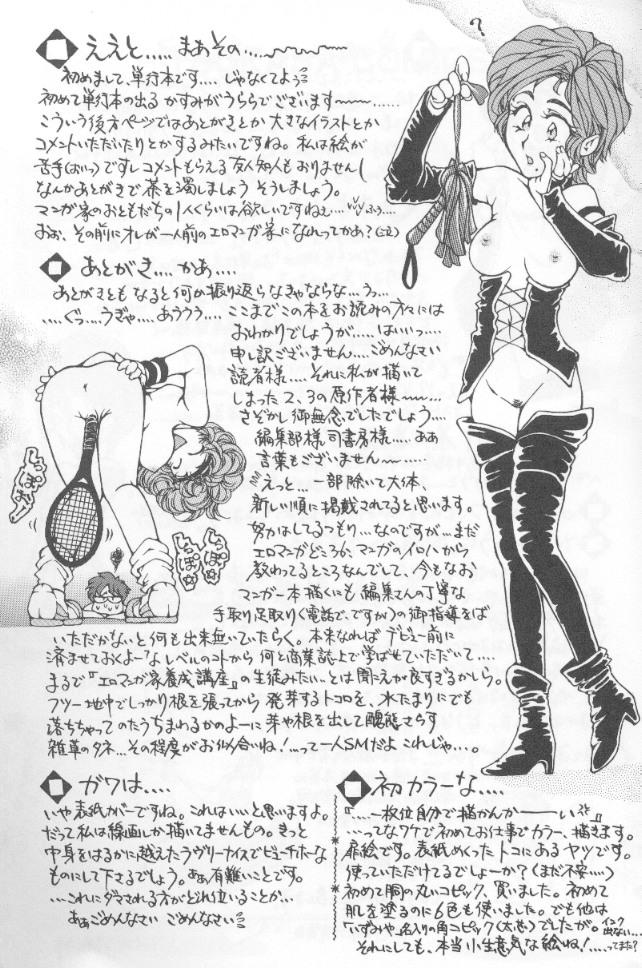 ?
ええと..... まぁその....
初めまして、単行本です.... じゃなくてよぅ
初めて単行本の出る かすみがうららでございます〜〜〜......
こういう後方ページではあとがきとか 大きなイラストとか
コメントいただいたりとかするみたいですね。私は絵が
苦手(おいっ)ですしコメントもらえる友人知人もおりませんし
なんかあとがきで茶を濁しましょう そうしましょう。
マンガ家のおともだちの1人くらいは欲しいですねぇ....
おぉ、その前にオレが一人前のエロマンガ家になれってかぁ?
あとがき.... かぁ....
あとがきともなると何か振り返らなきゃならな...うっ...
....ぐっ....うぎゃ....あううう.... ここまでこの本をお読みの方々には
おわかりでしょうが.....はいいっ....
申し訳ございません.... ごめんなさい
読者様.... それに私が描いて
しまった2、3の原作者様〜〜....
さぞかし御無念でしたでしょう....
編集部様、司書房様..... ああ
言葉もございません〜〜......
えっと... 一部除いて大体、
新しい順に掲載されてると思います。
努力はしてるつもり...なのですが...まだ
エロマンガどころか、マンガのイロハから
教わってるところなんでして、今もなお
マンガ一本描くにも 編集さんの丁寧な
手取り足取り(電話で、ですが)の御指導をば
いただかないと何も出来無いていたらく。本来なれば デビュー前に
済ませておくよーなレベルのコトから 何と商業誌上で学ばせていただいて....
まるで『エロマンガ家養成講座』の生徒みたい...とは聞こえが良すぎるかしら。
フツー地中でしっかり根を張ってから 発芽するトコロを、水たまりにでも
落ちちゃってのたうちまわるかのよーに芽や根を出して醜態さらす
雑草のタネ...その程度がお似合いね!...って一人SMだよ これじゃ...。
ガワは....
いや表紙カバーですね。これはいいと思いますよ。
だって私は線画しか描いてませんもの。きっと
中身をはるかに越えたラヴリーナイスでビューチホーな
ものにして下さるでしょう。あぁ有難いことです。
....これにダマされる方がどれ位いることか...
ああごめんなさい ごめんなさい
初カラーな....
『....一枚位自分で描かんかーーーい』
....ってなワケで初めてお仕事でカラー、描きます。
扉絵です。表紙めくったトコにあるヤツです。
使っていただけてるでしょーか?(まだ不安....)
初めて胴の丸いコピック、買いました。初めて
肌を塗るのに6色も使いました。でも他は
「いずみや」名入りの角コピック(太古)でしたが。インク出ない...
それにしても、本当小生意気な絵ね!....ってまた?